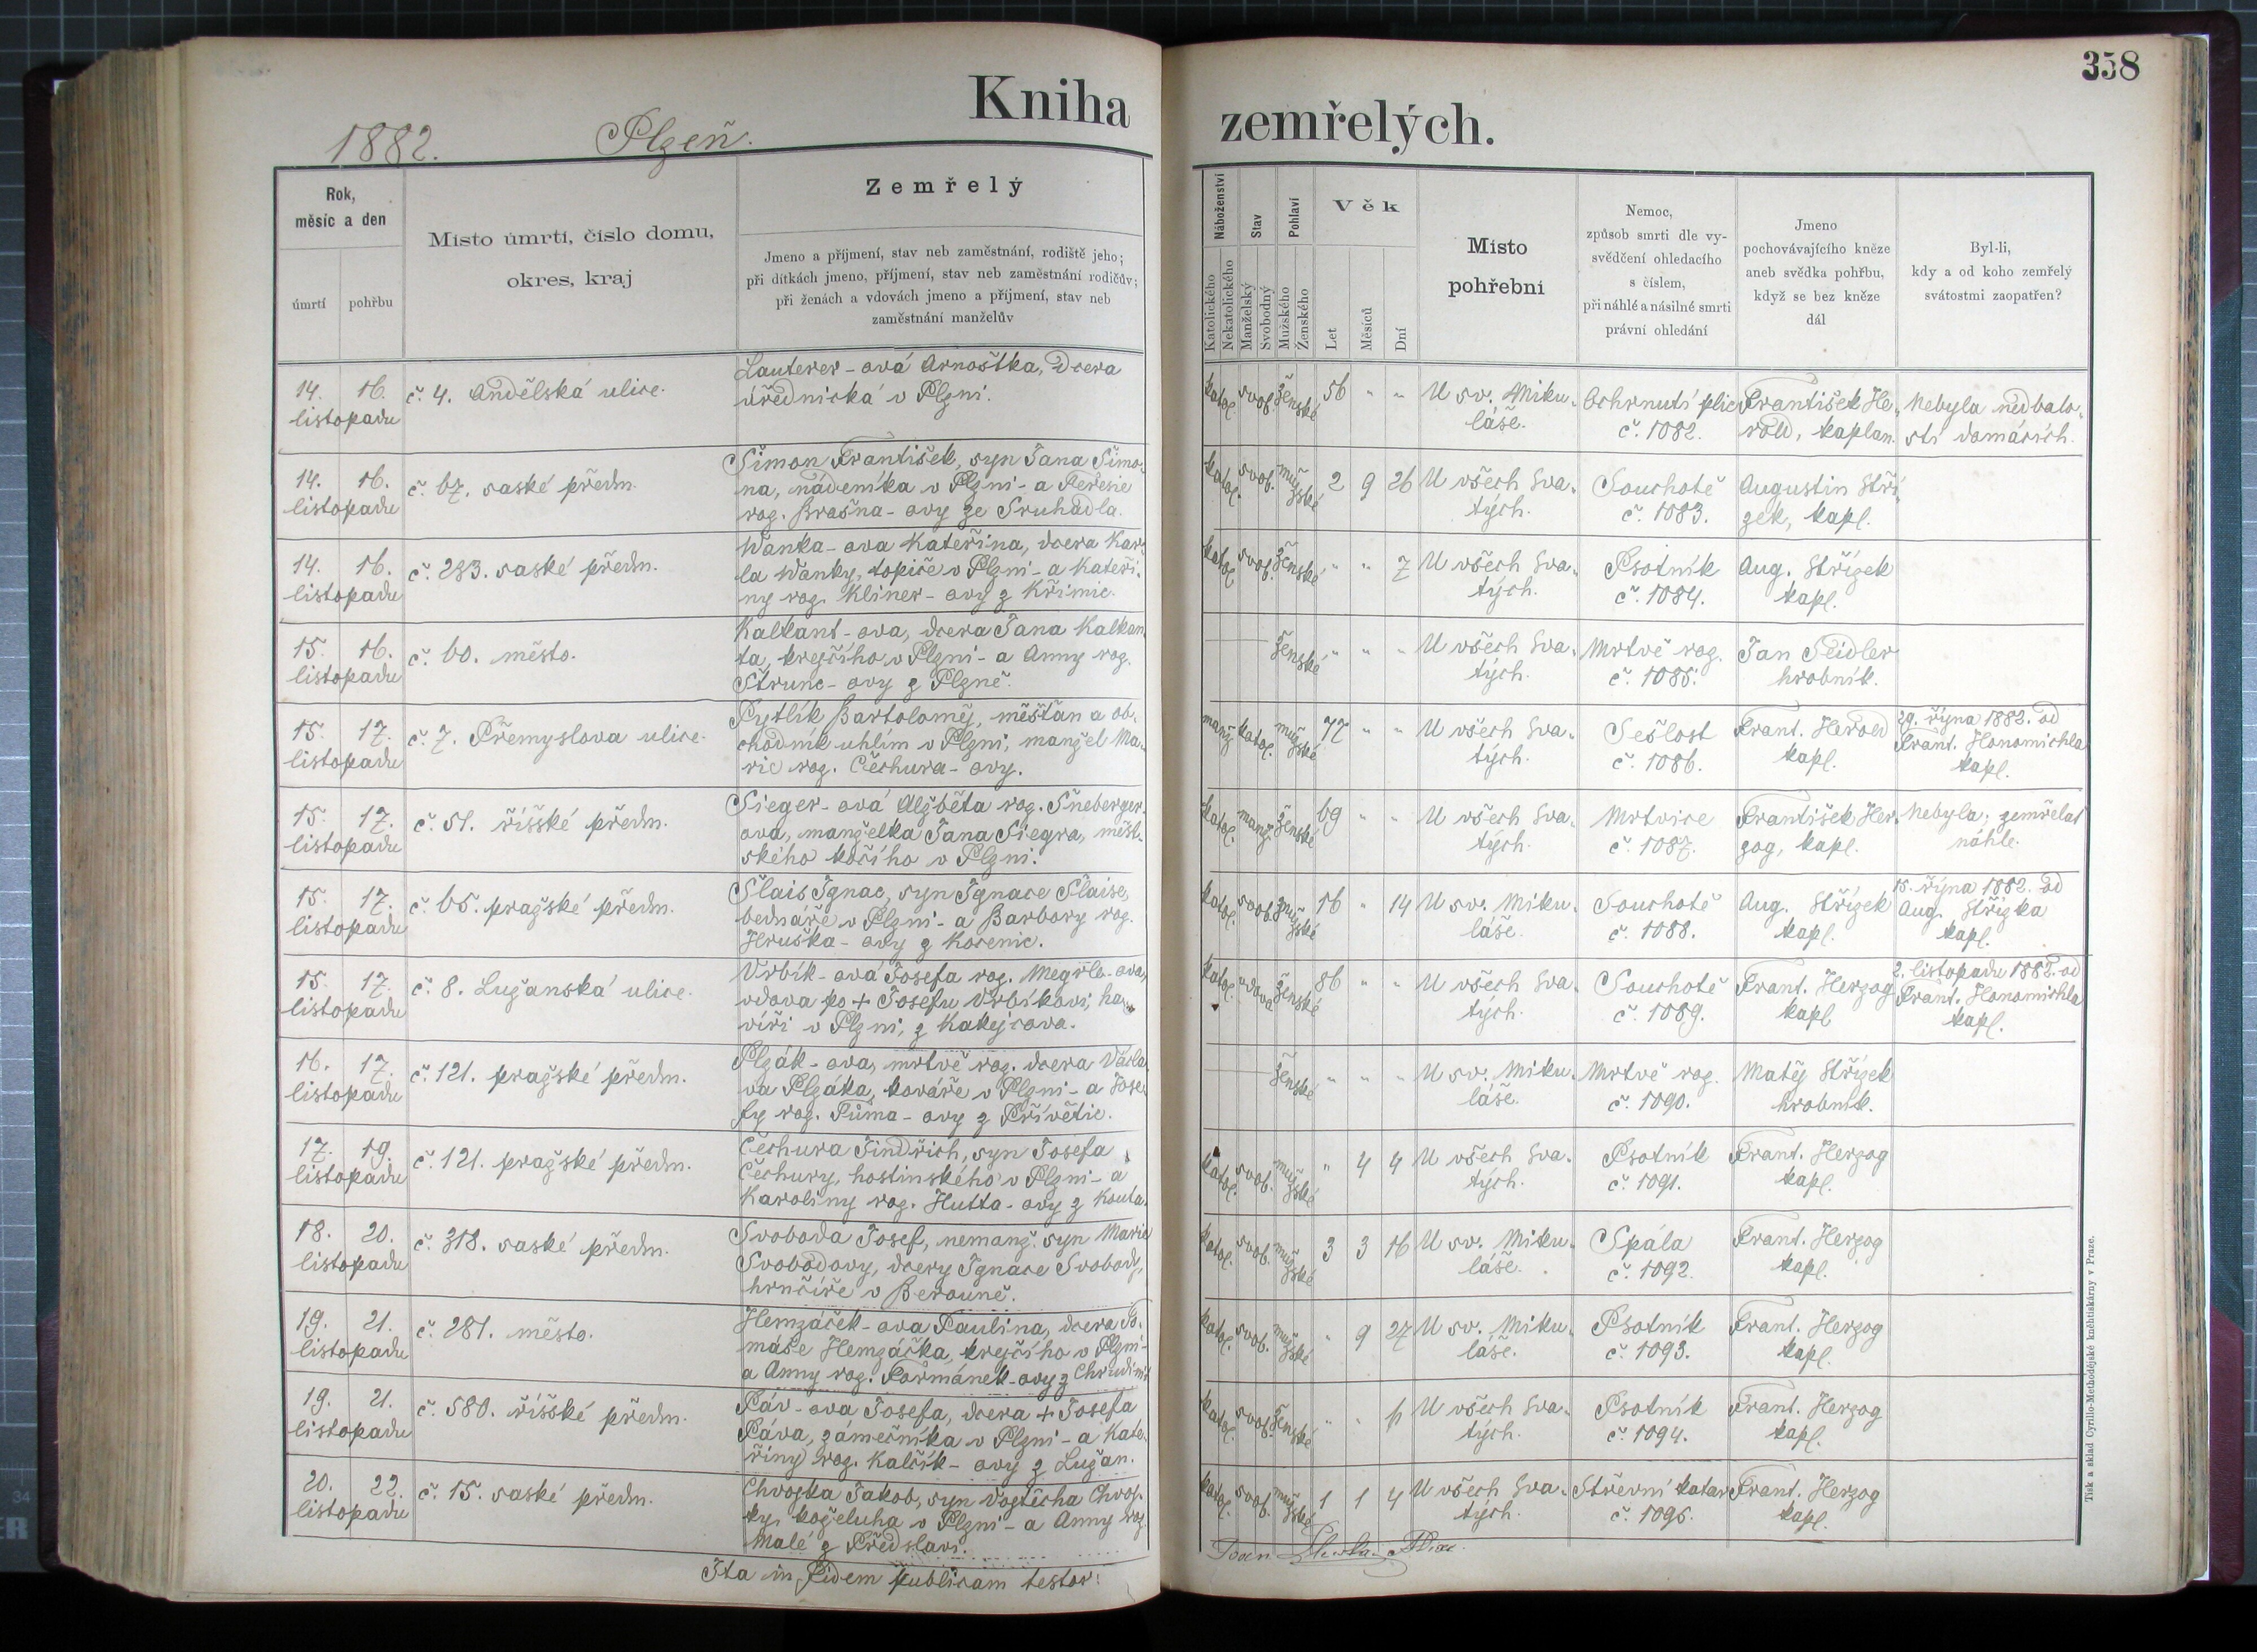 358
Kniha
zemřelých.
1882.
Plzeň.
Rok,
měsíc a den
úmrtí
pohřbu
Místo úmrtí, číslo domu,
okres, kraj
Zemřelý
Jmeno a příjmení, stav neb zaměstnání, rodiště jeho;
při dítkách jmeno, příjmení, stav neb zaměstnání rodičův;
při ženách a vdovách jmeno a příjmení, stav neb
zaměstnání manželův
Náboženství
Katolického
Nekatolického
Stav
Manželský
Svobodný
Pohlaví
Mužského
Ženského
Věk
Let
Měsíců
Dní
Místo
pohřební
Nemoc,
způsob smrti dle vy-
svědčení ohledacího
s číslem,
při náhlé a násilné smrti
právní ohledání
Jmeno
pochovávajícího kněze
aneb svědka pohřbu,
když se bez kněze
dál
Byl-li,
kdy a od koho zemřelý
svátostmi zaopatřen?
14. 16.
listopadu
č. 4. Andělská ulice.
Lauterer-ová Arnoštka, dcera
úřednická v Plzni.
katol. svob. ženské 56 " "
U sv. Miku-
láše.
Ochrnutí plic
č. 1082.
František He-
rold, kaplan.
Nebyla nedbalo-
stí domácích.
14. 16.
listopadu
č. 67. saské předm.
Šimon František, syn Jana Šimo-
na, nádeníka v Plzni - a Terezie
roz. Brašna-ovy ze Sruhadla.
katol. svob. mužské 2 9 26
U všech Sva-
tých.
Souchotě
č. 1083.
Augustin Stří-
zek, kapl.
14. 16.
listopadu
č. 283. saské předm.
Wanka-ova Kateřina, dcera Kar-
la Wanky, topiče v Plzni - a Kateři-
ny roz. Kliner-ovy z Křimic.
katol. svob. ženské " " 7
U všech Sva-
tých.
Psotník
č. 1084.
Aug. Střízek
kapl.
15. 16.
listopadu
č. 60. město.
Kalkant-ova, dcera Jana Kalkan-
ta, krejčího v Plzni - a Anny roz.
Štrunc-ovy z Plzně.
ženské " " "
U všech Sva-
tých.
Mrtvě roz.
č. 1085.
Jan Seidler
hrobník.
15. 17.
listopadu
č. 7. Přemyslova ulice.
Pytlík Bartoloměj, měšťan a ob-
chodník uhlím v Plzni, manžel Ma-
rie roz. Čechura-ovy.
manž. katol. mužské 77 " "
U všech Sva-
tých.
Sešlost
č. 1086.
Frant. Herold
kapl.
29. října 1882. od
Frant. Honomichla
kapl.
15. 17.
listopadu
č. 51. říšské předm.
Sieger-ová Alžběta roz. Šneberger-
ova, manželka Jana Siegra, měst-
ského kočího v Plzni.
katol. manž. ženské 69 " "
U všech Sva-
tých.
Mrtvice
č. 1087.
František Her-
zog, kapl.
Nebyla; zemřelať
náhle.
15. 17.
listopadu
č. 65. pražské předm.
Šlais Ignac, syn Ignace Šlaise,
bednáře v Plzni - a Barbory roz.
Hruška-ovy z Kocenic.
katol. svob. mužské 16 " 14
U sv. Miku-
láše.
Souchotě
č. 1088.
Aug. Střízek
kapl.
15. října 1882. od
Aug. Střízka
kapl.
15. 17.
listopadu
č. 8. Lužanská ulice.
Vrbík-ová Josefa roz. -ova,
vdova po + Josefu Vrbíkovi, ha-
víři v Plzni, z Kakejcova.
katol. vdova ženské 86 " "
U všech Sva-
tých.
Souchotě
č. 1089.
Frant. Herzog
kapl
2. listopadu 1882. od
Frant. Honomichla
kapl.
16. 17.
listopadu
č. 121. pražské předm.
Plzák-ova, mrtvě roz. dcera Václa-
va Plzáka, kováře v Plzni - a Jose-
fy roz. Tůma-ovy z Přívětic.
ženské " " "
U sv. Miku-
láše.
Mrtvě roz.
č. 1090.
Matěj Střízek
hrobník.
17. 19.
listopadu
č. 121. pražské předm.
Čechura Jindřich, syn Josefa
Čechury, hostinského v Plzni - a
Karoliny roz. Hutta-ovy z Kouta.
katol. svob. mužské " 4 4
U všech Sva-
tých.
Psotník
č. 1091.
Frant. Herzog
kapl.
18. 20.
listopadu
č. 318. saské předm.
Svoboda Josef, nemanž. syn Marie
Svobodovy, dcery Ignace Svobody,
hrnčíře v Berouně.
katol. svob. mužské 3 3 16
U sv. Miku-
láše.
Spála
č. 1092.
Frant. Herzog
kapl.
19. 21.
listopadu
č. 281. město.
Hemzáček-ova Paulina, dcera To-
máše Hemzáčka, krejčího v Plzni -
a Anny roz. Formánek-ovy z Chrudimi
katol. svob. mužské " 9 27
U sv. Miku-
láše.
Psotník
č. 1093.
Frant. Herzog
kapl.
19. 21.
listopadu
č. 580. říšské předm.
Páv-ova Josefa, dcera + Josefa
Páva, zámečníka v Plzni - a Kate-
řiny roz. Kalčík-ovy z Lužan.
katol. svob. ženské " "
U všech Sva-
tých.
Psotník
č. 1094.
Frant. Herzog
kapl.
20. 22.
listopadu
č. 15. saské předm.
Chvojka Jakob, syn Vojtěcha Chvoj-
ky, koželuha v Plzni - a Anny roz.
Malé z Předslavi.
katol. svob. mužské 1 1 4
U všech Sva-
tých.
Střevní katar
č. 1095.
Frant. Herzog
kapl.
Ita in Fidem publicam testor:
Tisk a sklad Cyrillo-Methodějské kněhtiskárny v Praze.
34